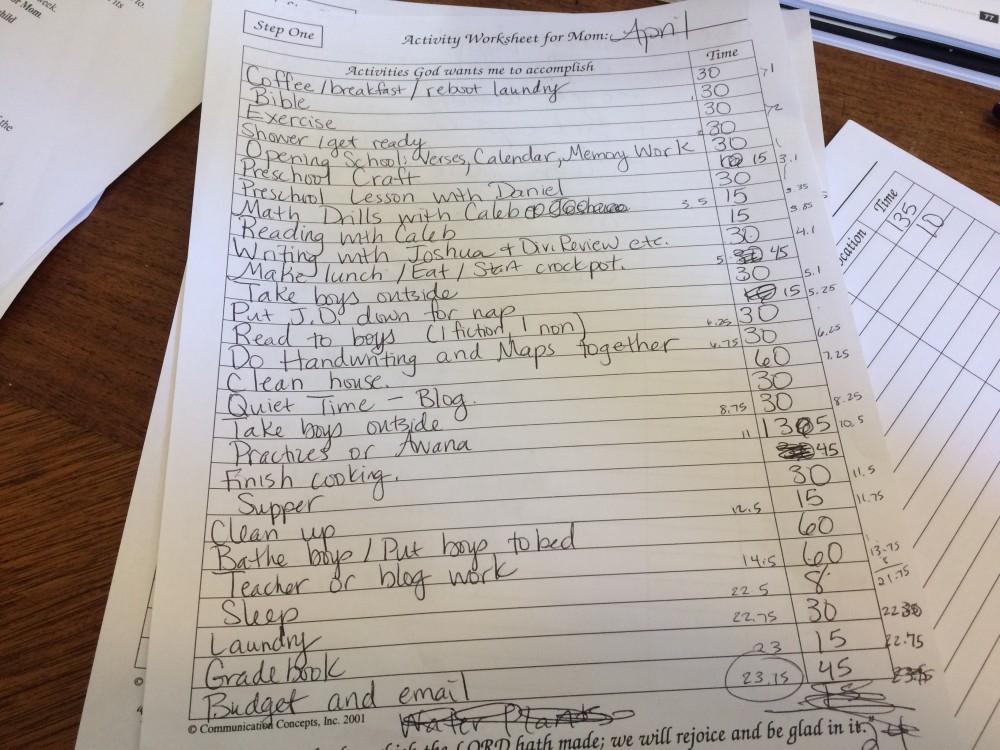 Step One
Activity Worksheet for Mom: April
Activities God wants me to accomplish Time
Coffee / breakfast / reboot laundry 30 .1
Bible 30
Exercise 30
Shower / get ready 30
Opening School: Verses, Calendar, Memory Work 30
Preschool Craft 15 3.1
Preschool Lesson with Daniel 30
Math Drills with Caleb 3.5 15 3.35
Reading with Caleb 15 3.85
Writing with Joshua + Div. Review etc. 30 4.1
Make lunch / Eat / Start crockpot. 5 45
Take boys outside 30 5.1
Put J.D. down for nap 15 5.25
Read to boys (1 fiction, 1 non) 6.25 30
Do Handwriting and Maps together 6.75 30 6.25
Clean house. 60 7.25
Quiet Time - Blog. 30
Take boys outside 8.75 30 8.25
Practices or Awana 11 135 10.5
Finish cooking. 45
Supper 30 11.5
Clean up 12.5 15 11.75
Bathe boys / Put boys to bed 60
Teacher or blog work 14.5 60 13.75
Sleep 22.5 8 21.75
Laundry 22.75 30
Gradebook 23 15 22.75
Budget and email 23.75 45
Water Plants
© Communication Concepts, Inc. 2001
the LORD hath made; we will rejoice and be glad in it."
Time
135
10
77
week.
Mom
the